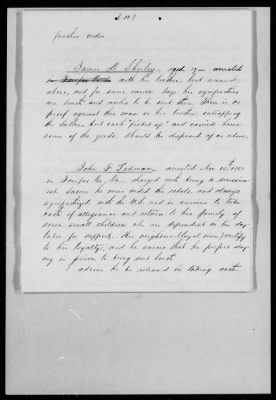 further order
James W. aged 7— arrested
in Fairfax Co. Va with his brother, last named
above, and for same cause. Says his sympathies
are South and wishes to be sent there. There is no
proof against this man or his brother, entrapping
the Sutlers, but each "picked up" and carried home
some of the goods. Should be disposed of as above.
John F. arrested Nov. 12th, 186
in Fairfax Co, Va. charged with being a secession
ist. Swears he never aided the rebels, and always
sympathized with the U.S. and is anxious to take
oath of allegiance and return to his family of
seven small children who are dependent on his day
labor for support. His neighbors (loyal men) certify
to his loyalty, and he swears that he prefers stay
ing in prison to being sent South.
I advise he be released on taking oath.